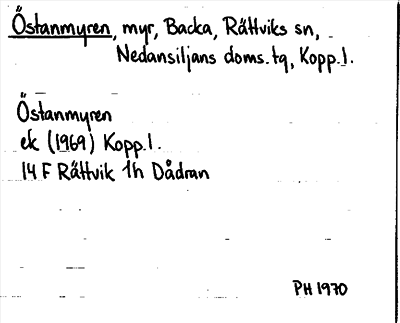 Östanmyren, myr, Backa, Rättviks sn,
Nedansiljans doms.tg, Kopp.l.
Östanmyren
ek (1969) Kopp.l.
14 F Rättvik 1h Dådran
PH 1970